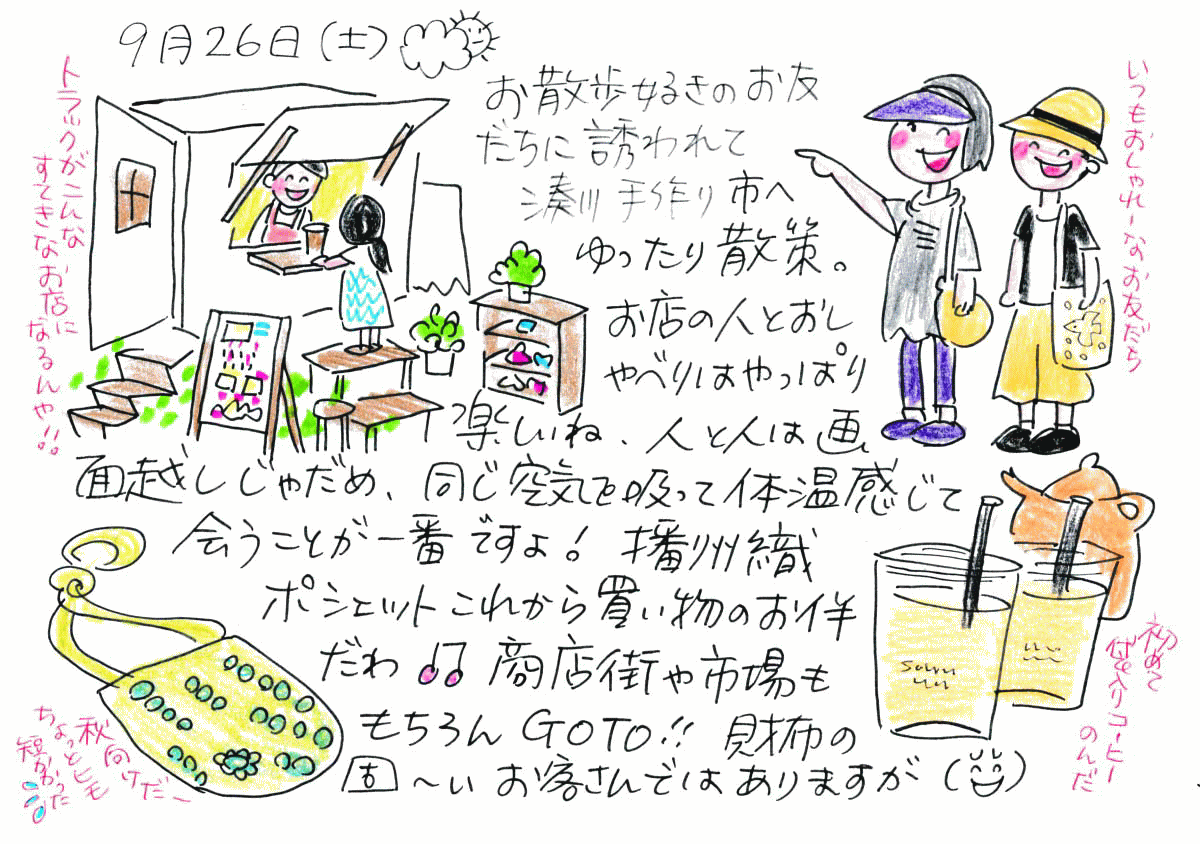 9月26日(土)
お散歩好きのお友
だちに誘われて
湊川手作り市へ
ゆったり散策。
お店の人とおし
ゃべりはやっぱり
楽しいね、人と人は画
面越しじゃだめ、同じ空気を吸って体温感じて
会うことが一番ですよ!播州織
ポシェットこれから買い物のお伴
だわ♪♫商店街や市場も
もちろんGOTO!!財布の
固〜いお客さんではありますが
トラックがこんな
すてきなお店に
なるんや!!
いつもおしゃれーなお友だち
初めて
入りコーヒー
のんだ
秋向けだ〜
ちょっとヒモ
短かかった